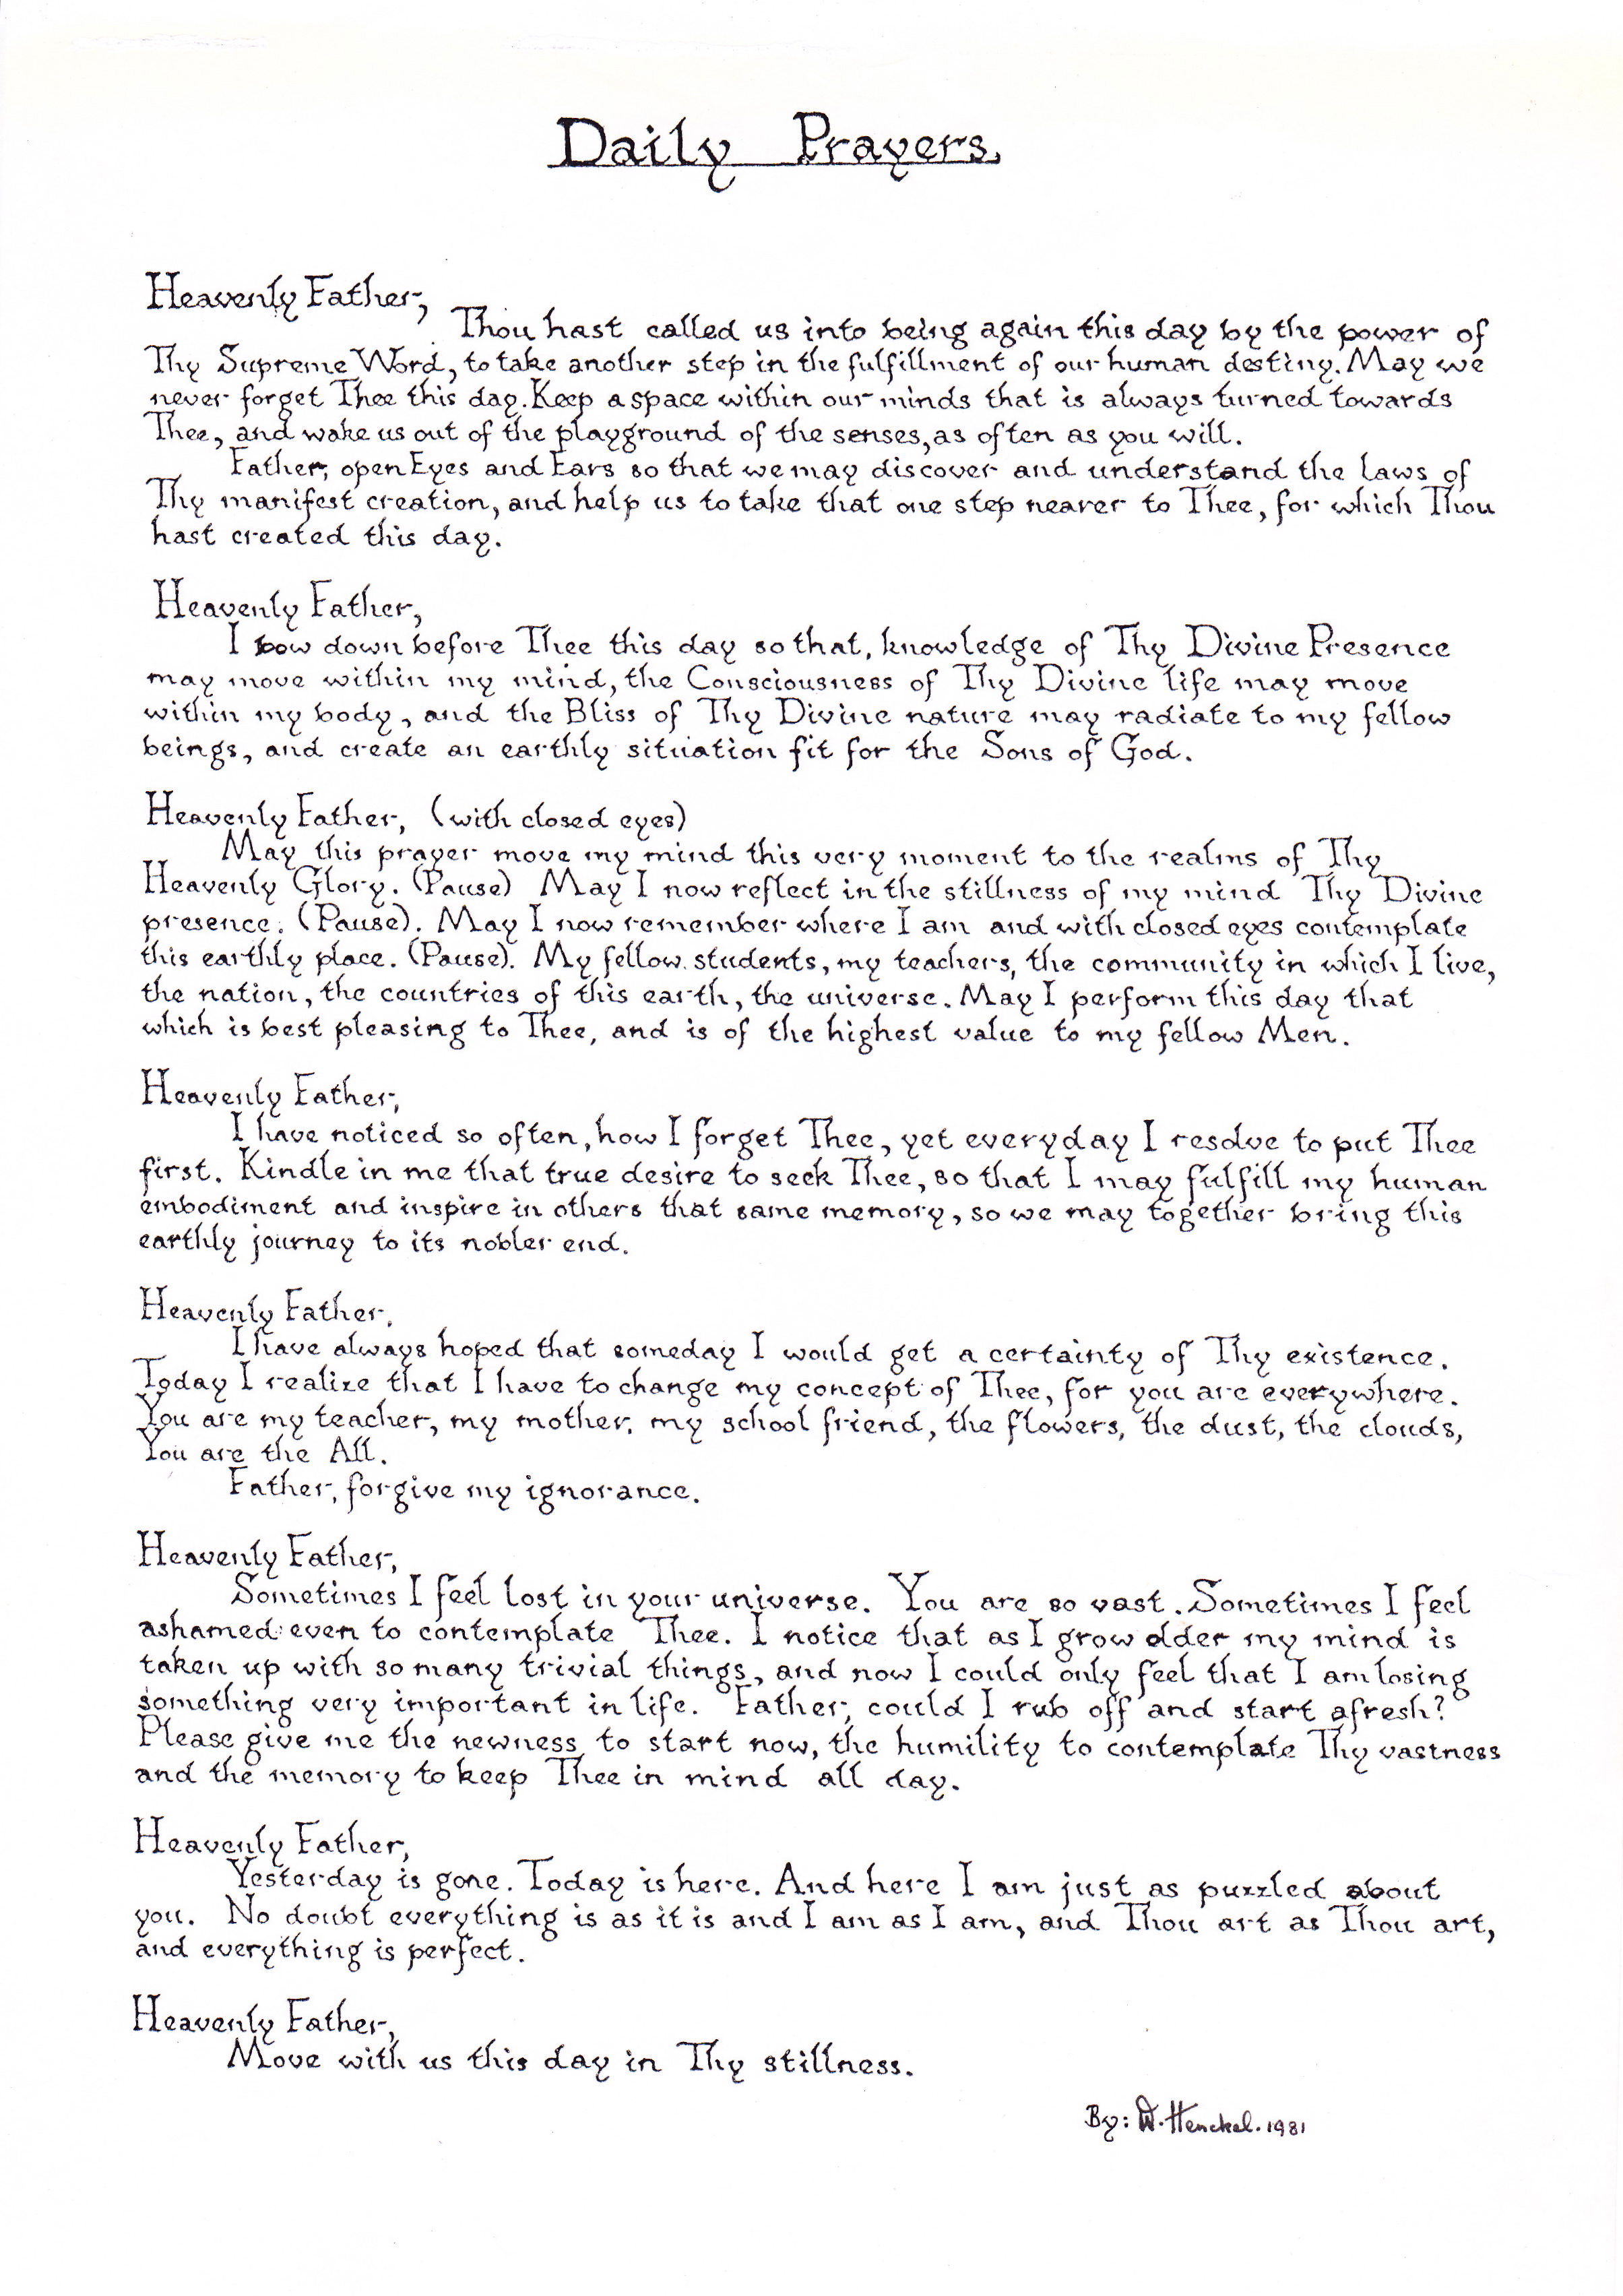 Daily Prayers.
Heavenly Father,
Thou hast called us into being again this day by the power of
Thy Supreme Word, to take another step in the fulfillment of our human destiny. May we
never forget Thee this day. Keep a space within our minds that is always turned towards
Thee, and wake us out of the playground of the senses, as often as you will.
Father, open Eyes and Ears so that we may discover and understand the laws of
Thy manifest creation, and help us to take that one step nearer to Thee, for which Thou
hast created this day.
Heavenly Father,
I bow down before Thee this day so that, knowledge of Thy Divine Presence
may move within my mind, the Consciousness of Thy Divine life may move
within my body, and the Bliss of Thy Divine nature may radiate to my fellow
beings, and create an earthly situation fit for the Sons of God.
Heavenly Father, (with closed eyes)
May this prayer move my mind this very moment to the realms of Thy
Heavenly Glory. (Pause) May I now reflect in the stillness of my mind Thy Divine
presence. (Pause). May I now remember where I am and with closed eyes contemplate
this earthly place. (Pause). My fellow students, my teachers, the community in which I live,
the nation, the countries of this earth, the universe. May I perform this day that
which is best pleasing to Thee, and is of the highest value to my fellow Men.
Heavenly Father,
I have noticed so often, how I forget Thee, yet everyday I resolve to put Thee
first. Kindle in me that true desire to seek Thee, so that I may fulfill my human
embodiment and inspire in others that same memory, so we may together bring this
earthly journey to its nobler end.
Heavenly Father,
I have always hoped that someday I would get a certainty of Thy existence.
Today I realize that I have to change my concept of Thee, for you are everywhere.
You are my teacher, my mother, my school friend, the flowers, the dust, the clouds,
You are the All.
Father, forgive my ignorance.
Heavenly Father,
Sometimes I feel lost in your universe. You are so vast. Sometimes I feel
ashamed even to contemplate Thee. I notice that as I grow older my mind is
taken up with so many trivial things, and now I could only feel that I am losing
something very important in life. Father, could I rub off and start afresh?
Please give me the newness to start now, the humility to contemplate Thy vastness
and the memory to keep Thee in mind all day.
Heavenly Father,
Yesterday is gone. Today is here. And here I am just as puzzled about
you. No doubt everything is as it is and I am as I am, and Thou art as Thou art,
and everything is perfect.
Heavenly Father,
Move with us this day in Thy stillness.
By: W. Henckel. 1981